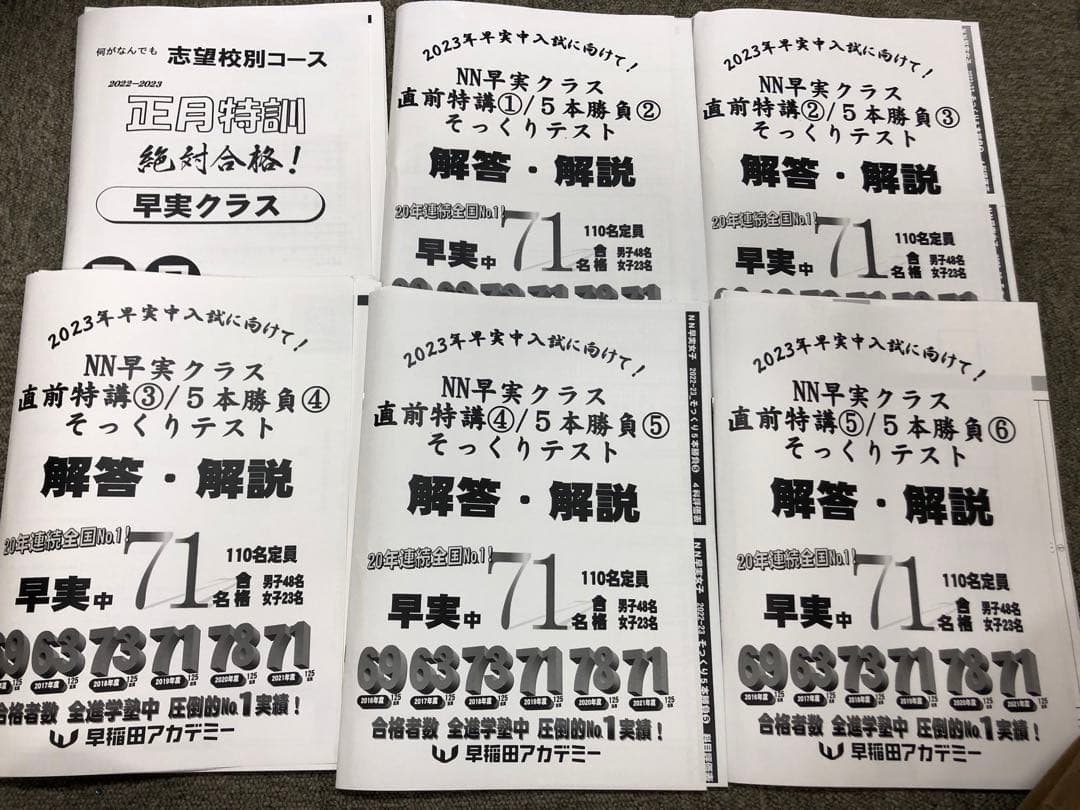 何がなんでも 志望校別コース
2022−2023
正月特訓
絶対合格！
早実クラス
2023年早実中入試に向けて！
NN早実クラス
直前特講①/5本勝負②
そっくりテスト
解答・解説
20年連続全国No.1！
早実中 71名合格
110名定員
男子48名
女子23名
2023年早実中入試に向けて！
NN早実クラス
直前特講②/5本勝負③
そっくりテスト
解答・解説
20年連続全国No.1！
早実中 71名合格
110名定員
男子48名
女子23名
2023年早実中入試に向けて！
NN早実クラス
直前特講③/5本勝負④
そっくりテスト
解答・解説
20年連続全国No.1！
早実中 71名合格
110名定員
男子48名
女子23名
69 63 73 71 78 71
2017年度 2018年度 2019年度 2020年度 2021年度
合格者数 全進学塾中 圧倒的No.1実績！
早稲田アカデミー
2023年早実中入試に向けて！
NN早実クラス
直前特講④/5本勝負⑤
そっくりテスト
解答・解説
20年連続全国No.1！
早実中 71名合格
110名定員
男子48名
女子23名
69 63 73 71 78 71
2016年度 2017年度 2018年度 2019年度 2020年度 2021年度
合格者数 全進学塾中 圧倒的No.1実績！
早稲田アカデミー
NN早実女子 2022-23_そっくり5本勝負⑤ 4科評価表
2023年早実中入試に向けて！
NN早実クラス
直前特講⑤/5本勝負⑥
そっくりテスト
解答・解説
20年連続全国No.1！
早実中 71名合格
110名定員
男子48名
女子23名
69 63 73 71 78 71
2016年度 2017年度 2018年度 2019年度 2020年度 2021年度
合格者数 全進学塾中 圧倒的No.1実績！
早稲田アカデミー